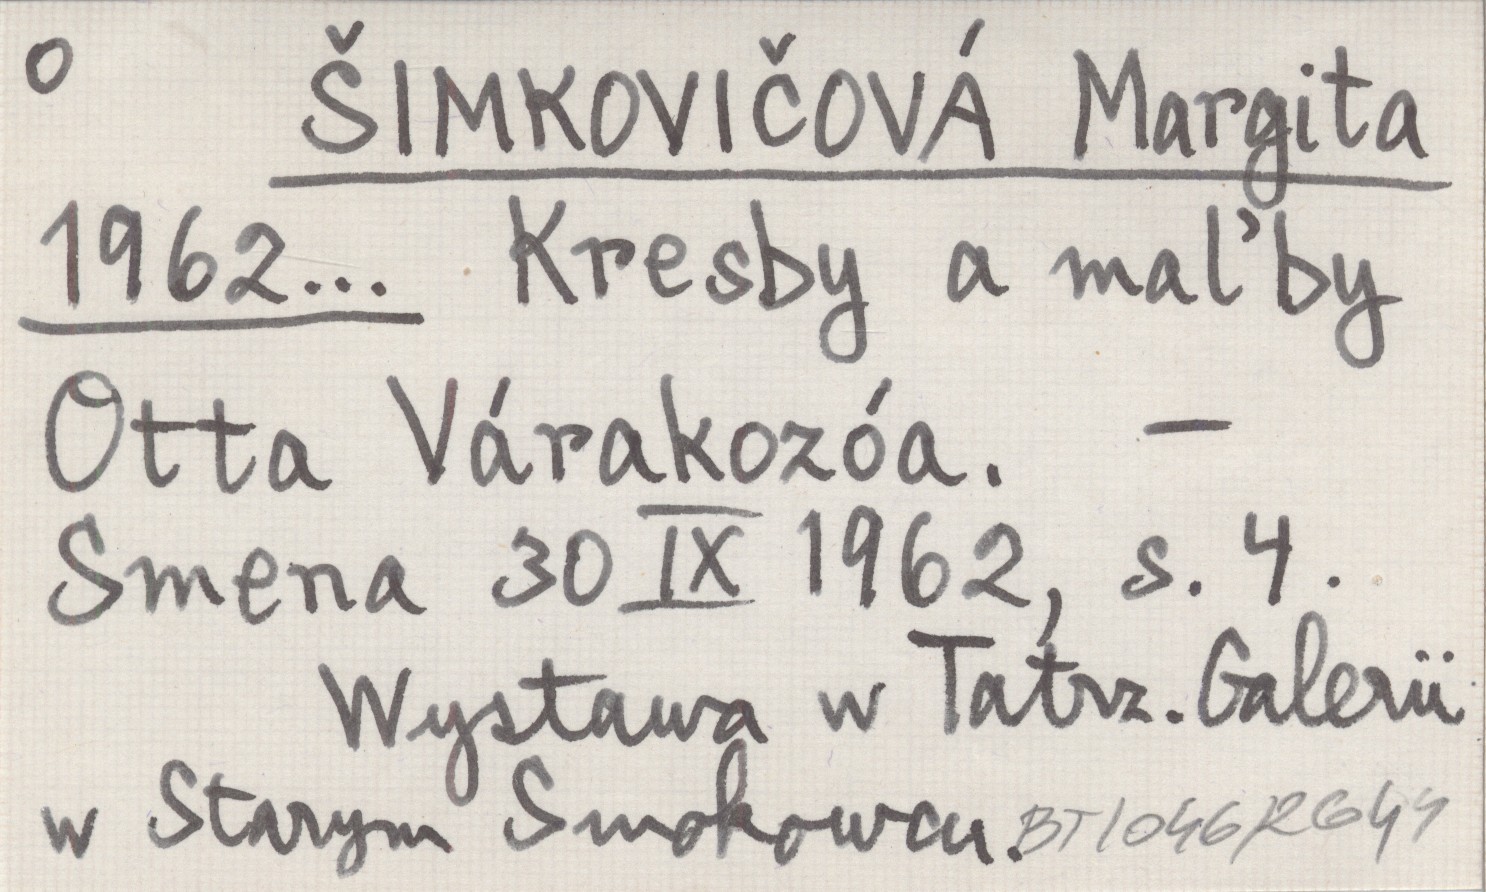 o ŠIMKOVIČOVÁ Margita
1962... Kresby a maľby
Otta Várakozóa. —
Smena 30 IX 1962, s. 4.
Wystawa w Tatrz. Galerii
w Starym Smokowcu. BT/046/RG44